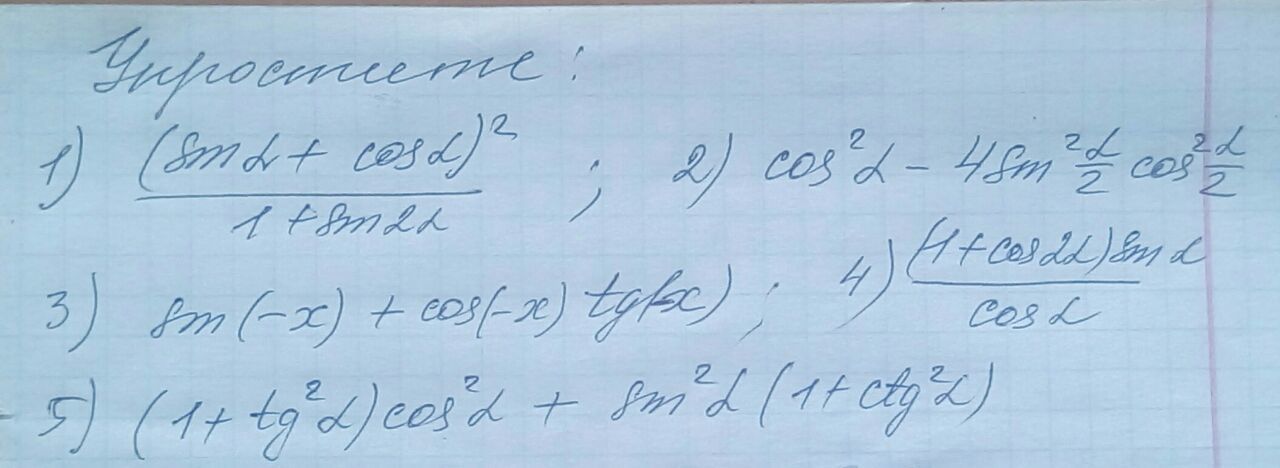 Упростите:
1) (sinα + cosα)² / 1 + sin2α ; 2) cos²α - 4sin²α/2 cos²α/2
3) sin(-x) + cos(-x) tg(-x) ; 4) (1+cos2α)sinα / cosα
5) (1 + tg²α)cos²α + sin²α(1 + ctg²α)